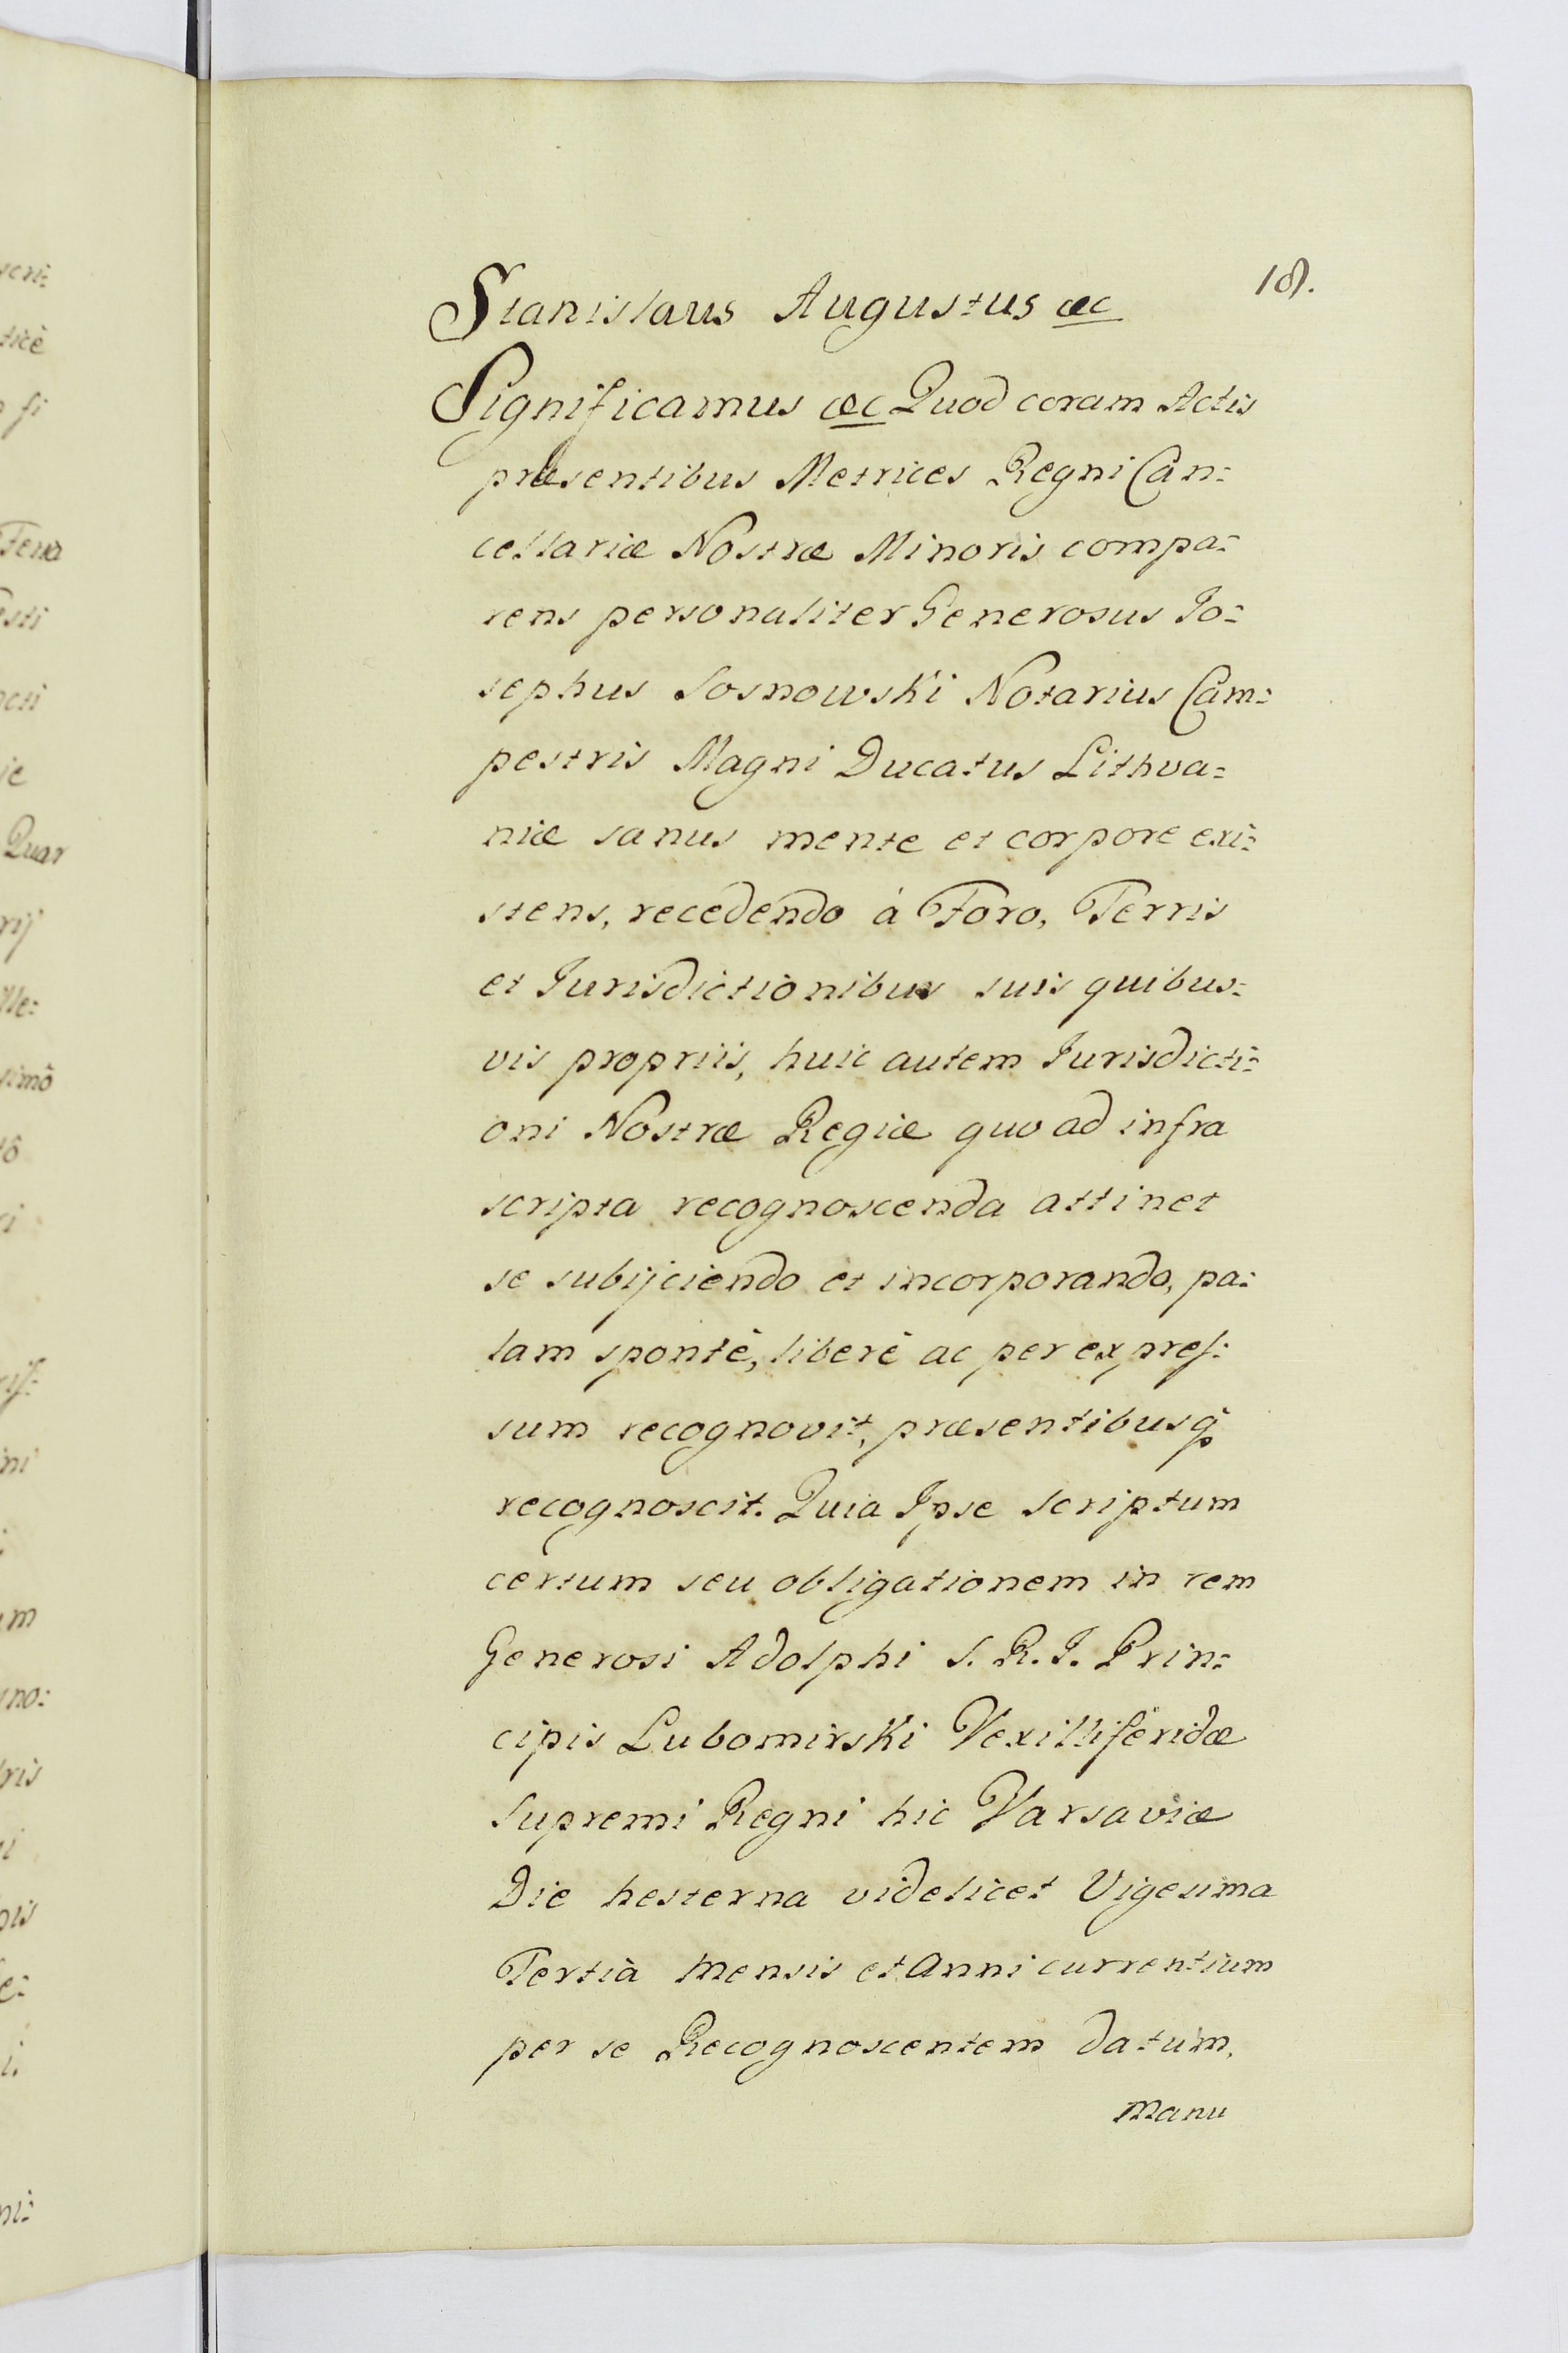 18.
Stanislaus Augustus &c
Significamus &c Quod coram Actis
præsentibus Metrices Regni Can=
cellariæ Nostræ Minoris compa=
rens personaliter Generosus Jo=
sephus Sosnowski Notarius Cam=
pestris Magni Ducatus Lithva=
niæ sanus mente et corpore exi=
stens, recedendo à Foro, Terris
et Jurisdictionibus suis quibus=
vis propriis, huic autem Jurisdicti=
oni Nostræ Regiæ quo ad infra
scripta recognoscenda attinet
se subijciendo et incorporando, pa=
lam spontè, liberè ac per expres=
sum recognovit, præsentibusq
recognoscit. Quia Ipse Scriptum
certum seu obligationem in rem
Generosi Adolphi S. R. I. Prin=
cipis Lubomirski Vexilliferidæ
Supremi Regni hic Varsaviæ
Die hesterna videlicet Vigesima
Tertià Mensis et Anni currentium
per se Recognoscentem datum,
Manu
scri=
ticè
si
Quar
rij
lle=
simô
um
dris